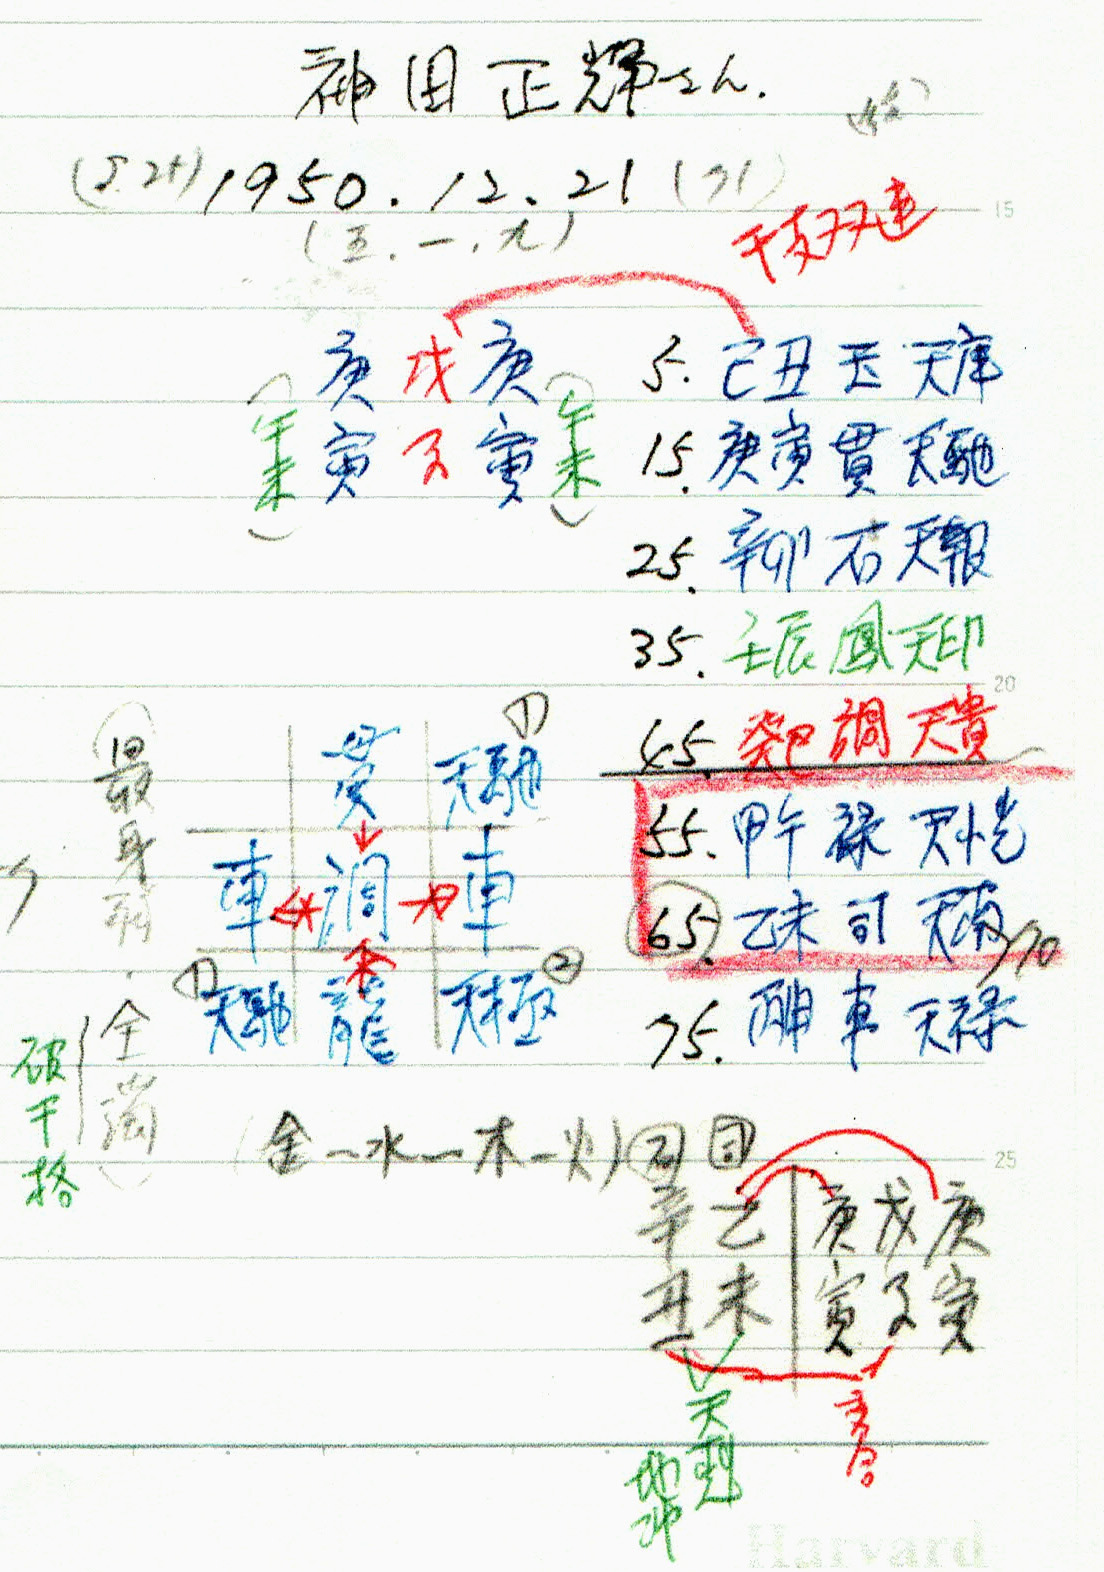 神田正輝さん.
1950.12.21 (71)
(五.一.九)
干支双連
庚 戊 庚
寅 子 寅
(午未) (午未)
5. 己丑 玉 天庫
15. 庚寅 貫 天馳
25. 辛卯 石 天報
35. 壬辰 鳳 天印
45. 癸巳 調 天貴
55. 甲午 禄 天恍
65. 乙未 司 天南 70
75. 丙申 車 天禄
① 天馳
車 調 車
① 天馳 龍 天極 ②
最身弱.全端
破干格
(金—水—木—火)
辛 乙 庚 戊 庚
丑 未 寅 子 寅
天剋
地冲
15
20
25
Harvard